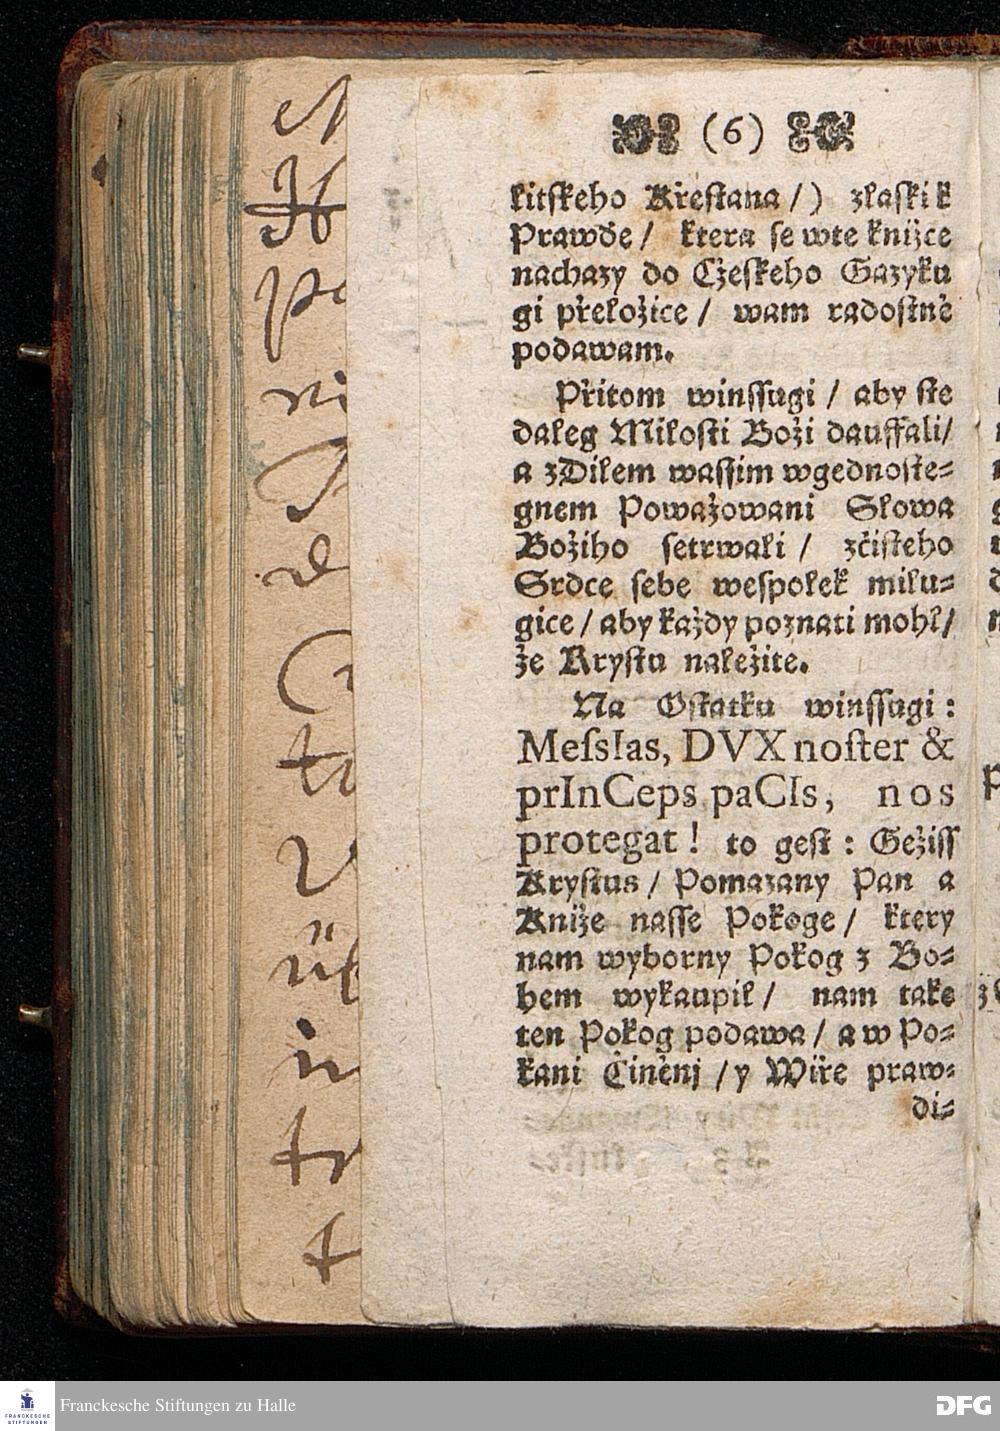 (6)
kitſkeho Křeſtana /) zlaſki k
Prawde / ktera ſe wte knijce
nachazy do Cżeſkeho Gazyku
gi přeložice / wam radoſtně
podawam.
Přitom winſſugi / aby ſte
daleg Miloſti Boži dauffali/
a zDilem waſſim wgednoſte⸗
gnem Powažowani Slowa
Božiho ſetrwali / zčiſteho
Srdce ſebe weſpolek milu⸗
gice / aby každy poznati mohl/
že Kryſtu naležite.
Na Oſtatku winſſugi :
MeſsIas, DVX noſter &
prInCeps paCIs, nos
protegat ! to geſt : Gežiſſ
Kryſtus / Pomazany Pan a
Kniže naſſe Pokoge / ktery
nam wyborny Pokog z Bo⸗
hem wykaupil / nam take
ten Pokog podawa / a w Po⸗
kani Činěnj / y Wiře praw⸗
di⸗
Franckesche Stiftungen zu Halle
FRANCKESCHE
STIFTUNGEN
DFG